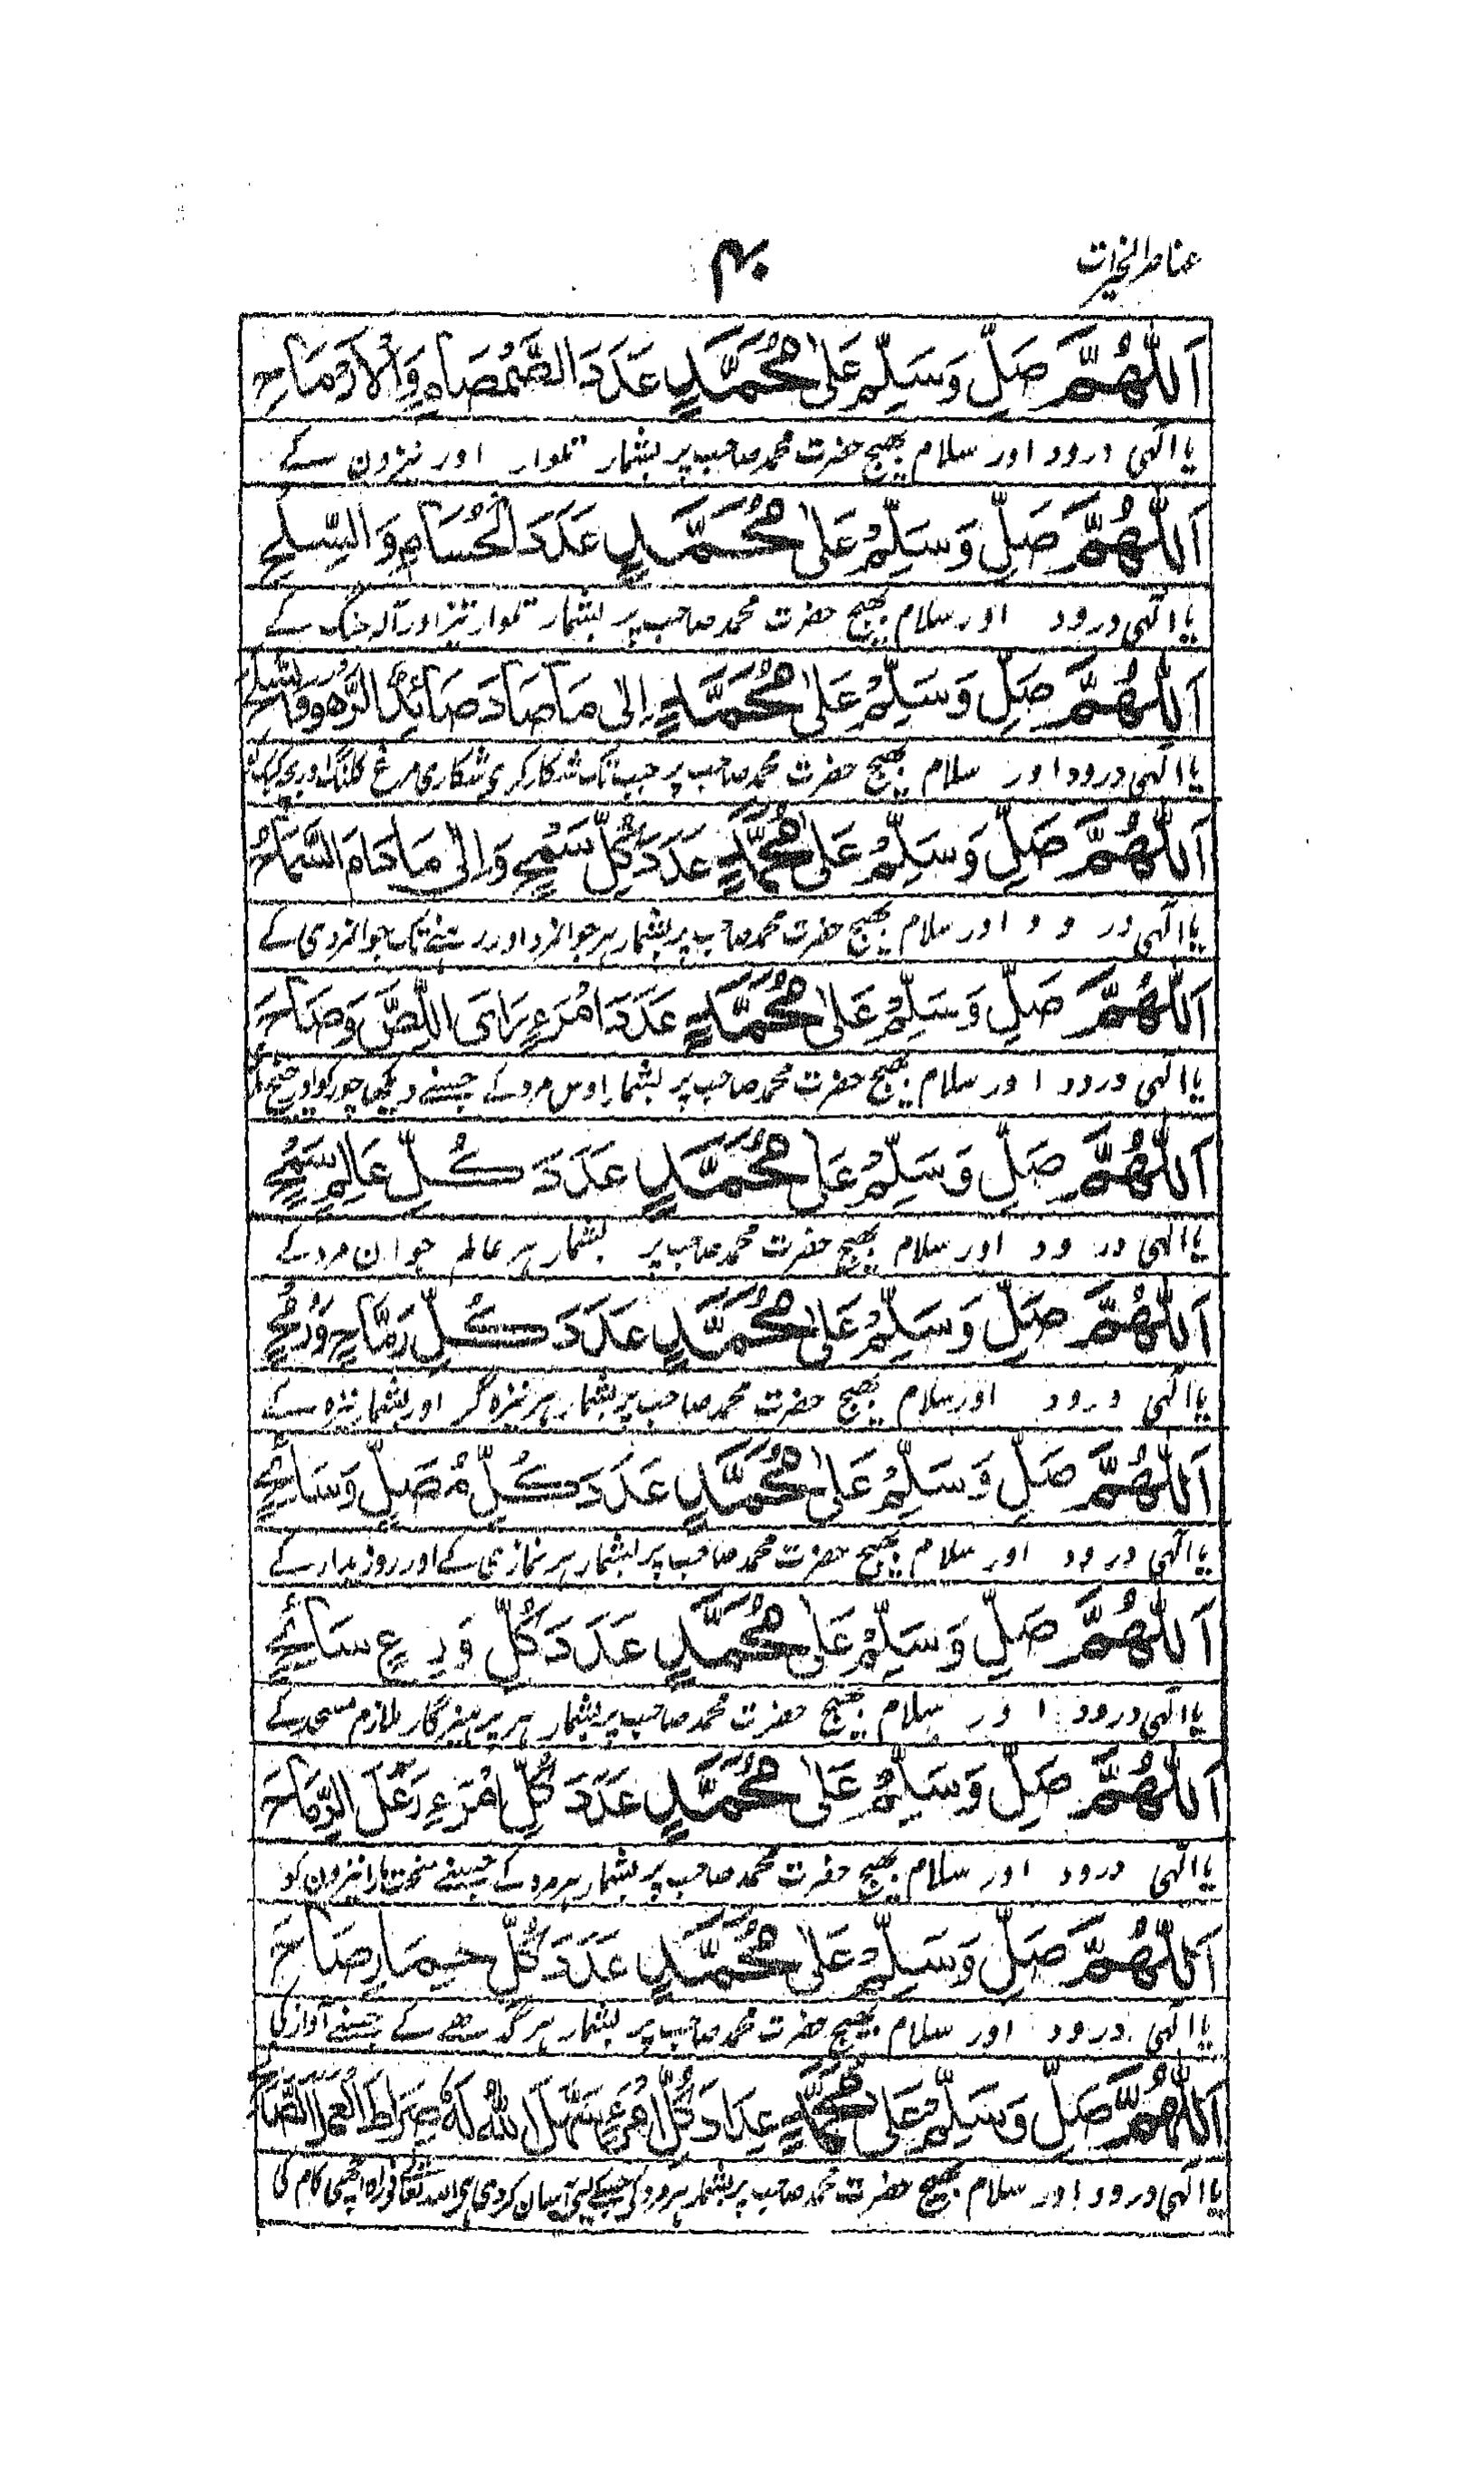 عناصر الخیرات
۴۰
اَللّٰهُمَّ صَلِّ وَسَلِّمْ عَلٰى مُحَمَّدٍ عَدَدَ الصَّمْصَامِ وَالْاَرْمَاحِ
یا الٰہی درود اور سلام بھیج حضرت محمد صاحب پر بشمار تلوار اور نیزون کے
اَللّٰهُمَّ صَلِّ وَسَلِّمْ عَلٰى مُحَمَّدٍ عَدَدَ الْحُسَامِ وَالسِّلْحِ
یا الٰہی درود اور سلام بھیج حضرت محمد صاحب پر بشمار تلوار تیز اور آلہ جنگ کے
اَللّٰهُمَّ صَلِّ وَسَلِّمْ عَلٰى مُحَمَّدٍ اِلٰى مَا صَادَ صَائِدُ الرَّهْوِ
یا الٰہی درود اور سلام بھیج حضرت محمد صاحب پر جب تک شکار کری شکاری مرغ کلنگ اور
اَللّٰهُمَّ صَلِّ وَسَلِّمْ عَلٰى مُحَمَّدٍ عَدَدَ كُلِّ سَمْحٍ وَاِلٰى مَا دَامَ السَّمَاحُ
یا الٰہی درود اور سلام بھیج حضرت محمد صاحب پر بشمار ہر جوانمرد اور رہنے تک جوانمردی کے
اَللّٰهُمَّ صَلِّ وَسَلِّمْ عَلٰى مُحَمَّدٍ عَدَدَ امْرَءٍ رَاَى اللِّصَّ وَصَاحَ
یا الٰہی درود اور سلام بھیج حضرت محمد صاحب پر بشمار اوس مرد کے جسنے دیکھی چور کو اور
اَللّٰهُمَّ صَلِّ وَسَلِّمْ عَلٰى مُحَمَّدٍ عَدَدَ كُلِّ عَالِمٍ سَمْحٍ
یا الٰہی درود اور سلام بھیج حضرت محمد صاحب پر بشمار ہر عالم جوان مرد کے
اَللّٰهُمَّ صَلِّ وَسَلِّمْ عَلٰى مُحَمَّدٍ عَدَدَ كُلِّ رَمَّاحٍ وَرُمْحٍ
یا الٰہی درود اور سلام بھیج حضرت محمد صاحب پر بشمار ہر نیزہ گر اور بشمار نیزہ کے
اَللّٰهُمَّ صَلِّ وَسَلِّمْ عَلٰى مُحَمَّدٍ عَدَدَ كُلِّ مُصَلٍّ وَسَائِحٍ
یا الٰہی درود اور سلام بھیج حضرت محمد صاحب پر بشمار ہر نمازی کے اور روزہ دار کے
اَللّٰهُمَّ صَلِّ وَسَلِّمْ عَلٰى مُحَمَّدٍ عَدَدَ كُلِّ وَرِعٍ سَائِحٍ
یا الٰہی درود اور سلام بھیج حضرت محمد صاحب پر بشمار ہر پرہیزگار ملازم مسجد کے
اَللّٰهُمَّ صَلِّ وَسَلِّمْ عَلٰى مُحَمَّدٍ عَدَدَ كُلِّ امْرَءٍ دَعَلَ الرِّمَاحَ
یا الٰہی درود اور سلام بھیج حضرت محمد صاحب پر بشمار ہر مرد کے جسنے سخت مارا نیزون کو
اَللّٰهُمَّ صَلِّ وَسَلِّمْ عَلٰى مُحَمَّدٍ عَدَدَ كُلِّ حِمَارٍ صَاحَ
یا الٰہی درود اور سلام بھیج حضرت محمد صاحب پر بشمار ہر گدھے کے جسنے آواز کی
اَللّٰهُمَّ صَلِّ وَسَلِّمْ عَلٰى مُحَمَّدٍ عِدَادَ كُلِّ امْرَءٍ سَهَّلَ اللّٰهُ لَهٗ صِرَاطَ الْعَمَلِ الصَّالِحِ
یا الٰہی درود اور سلام بھیج حضرت محمد صاحب پر بشمار ہر مرد کی جسکے لیی آسان کر دی ہی اللہ تعالٰی نی راہ اچھی کام کی